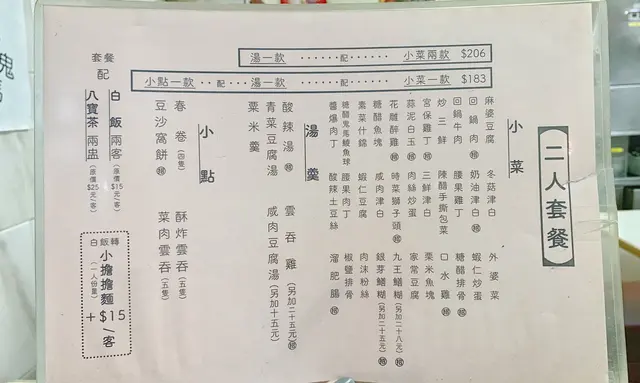 小菜兩款 $206 ······配······ 湯一款
小菜一款 $183 ··配·· 湯一款 ··配·· 小點一款
二人套餐
小菜
麻婆豆腐 冬菇津白 外婆菜
回鍋肉 奶油津白 蝦仁炒蛋
回鍋牛肉 腰果雞丁 糖醋排骨
炒三鮮 陳醋手撕包菜 口水雞
宮保雞丁 三鮮津白 栗米魚塊
蒜泥白玉 肉絲炒蛋 家常豆腐
花雕醉雞 時菜獅子頭 九王鱔糊(另加二十八元)
糖醋魚塊 咸肉津白 銀芽鱔糊(另加二十五元)
素菜什錦 蝦仁豆腐 肉沫粉絲
糖醋鬼馬鯪魚球 腰果肉丁 椒鹽排骨
醬爆肉丁 酸辣土豆絲 溜肥腸
湯羹
酸辣湯 雲吞雞(另加二十五元)
青菜豆腐湯 咸肉豆腐湯(另加十五元)
粟米羹
小點
春卷(四隻) 酥炸雲吞(五隻)
豆沙窩餅 菜肉雲吞(五隻)
套餐
配
白飯兩客(原價$15元/客)
八寶茶兩盅(原價$25元/客)
白飯轉
小擔擔麵
(一人份量)
+$15/客